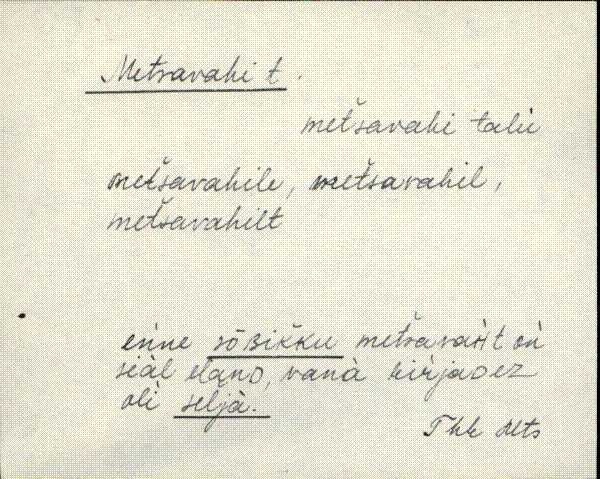 Metsavahi t.
metšavahi talù
metšavahile, metšavahil,
metšavahilt
eǹne sõsikku metšavaɦt òǹ
seàl elanD, vanà kirjaDez
olì seljà.